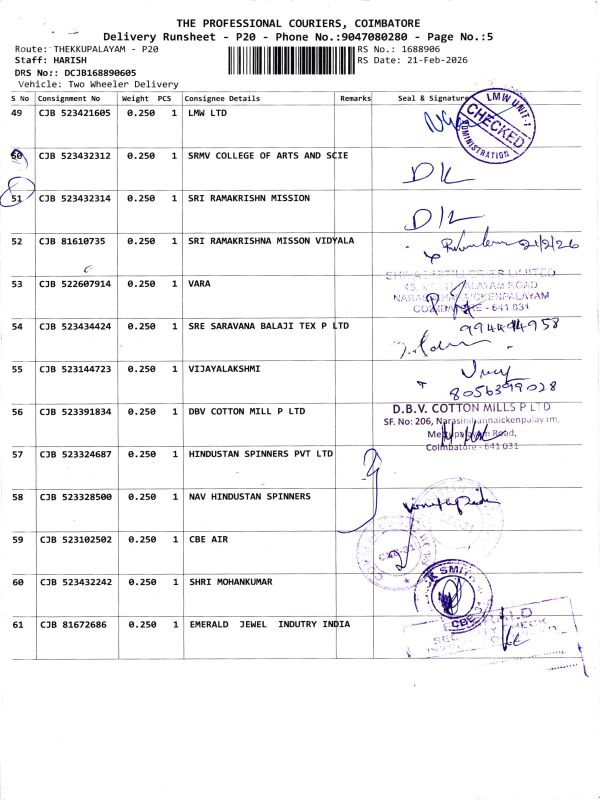 THE PROFESSIONAL COURIERS, COIMBATORE
Delivery Runsheet - P20 - Phone No.:9047080280 - Page No.:5
Route: THEKKUPALAYAM - P20
RS No.: 1688906
Staff: HARISH
RS Date: 21-Feb-2026
DRS No:: DCJB168890605
Vehicle: Two Wheeler Delivery
S No Consignment No Weight PCS Consignee Details Remarks Seal & Signature
49 CJB 523421605 0.250 1 LMW LTD
LMW UNIT-1 CHECKED ADMINISTRATION
50 CJB 523432312 0.250 1 SRMV COLLEGE OF ARTS AND SCIE
51 CJB 523432314 0.250 1 SRI RAMAKRISHN MISSION
52 CJB 81610735 0.250 1 SRI RAMAKRISHNA MISSON VIDYALA
21/2/26
53 CJB 522607914 0.250 1 VARA
LIMITED
ROAD
COIMBATORE - 641 031
54 CJB 523434424 0.250 1 SRE SARAVANA BALAJI TEX P LTD
55 CJB 523144723 0.250 1 VIJAYALAKSHMI
8056399028
56 CJB 523391834 0.250 1 DBV COTTON MILL P LTD
D.B.V. COTTON MILLS P LTD
SF. No: 206, Narasimhannaickenpalayam,
Road,
Coimbatore - 641 031
57 CJB 523324687 0.250 1 HINDUSTAN SPINNERS PVT LTD
58 CJB 523328500 0.250 1 NAV HINDUSTAN SPINNERS
59 CJB 523102502 0.250 1 CBE AIR
60 CJB 523432242 0.250 1 SHRI MOHANKUMAR
61 CJB 81672686 0.250 1 EMERALD JEWEL INDUTRY INDIA